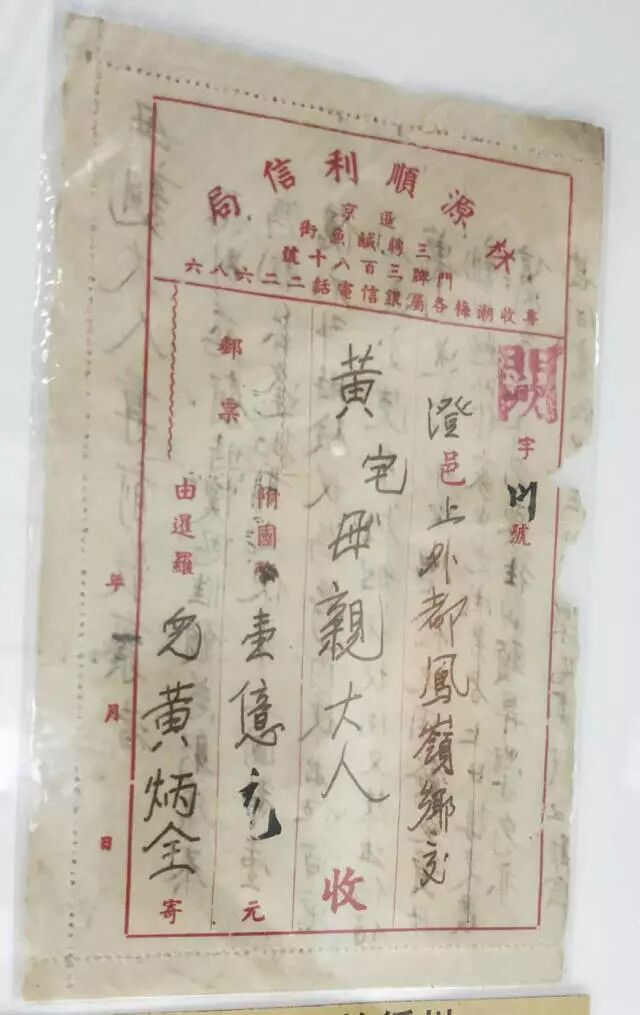 源順利信局
暹京
三聘鹹魚街
門牌三百八十號
專收潮梅各屬銀信電話二二六八六
字 號
澄邑上外都鳳嶺鄉交
黃宅母親大人 收
郵票
附國 壹億元 元
由暹羅 兒黃炳全 寄
年 月 日